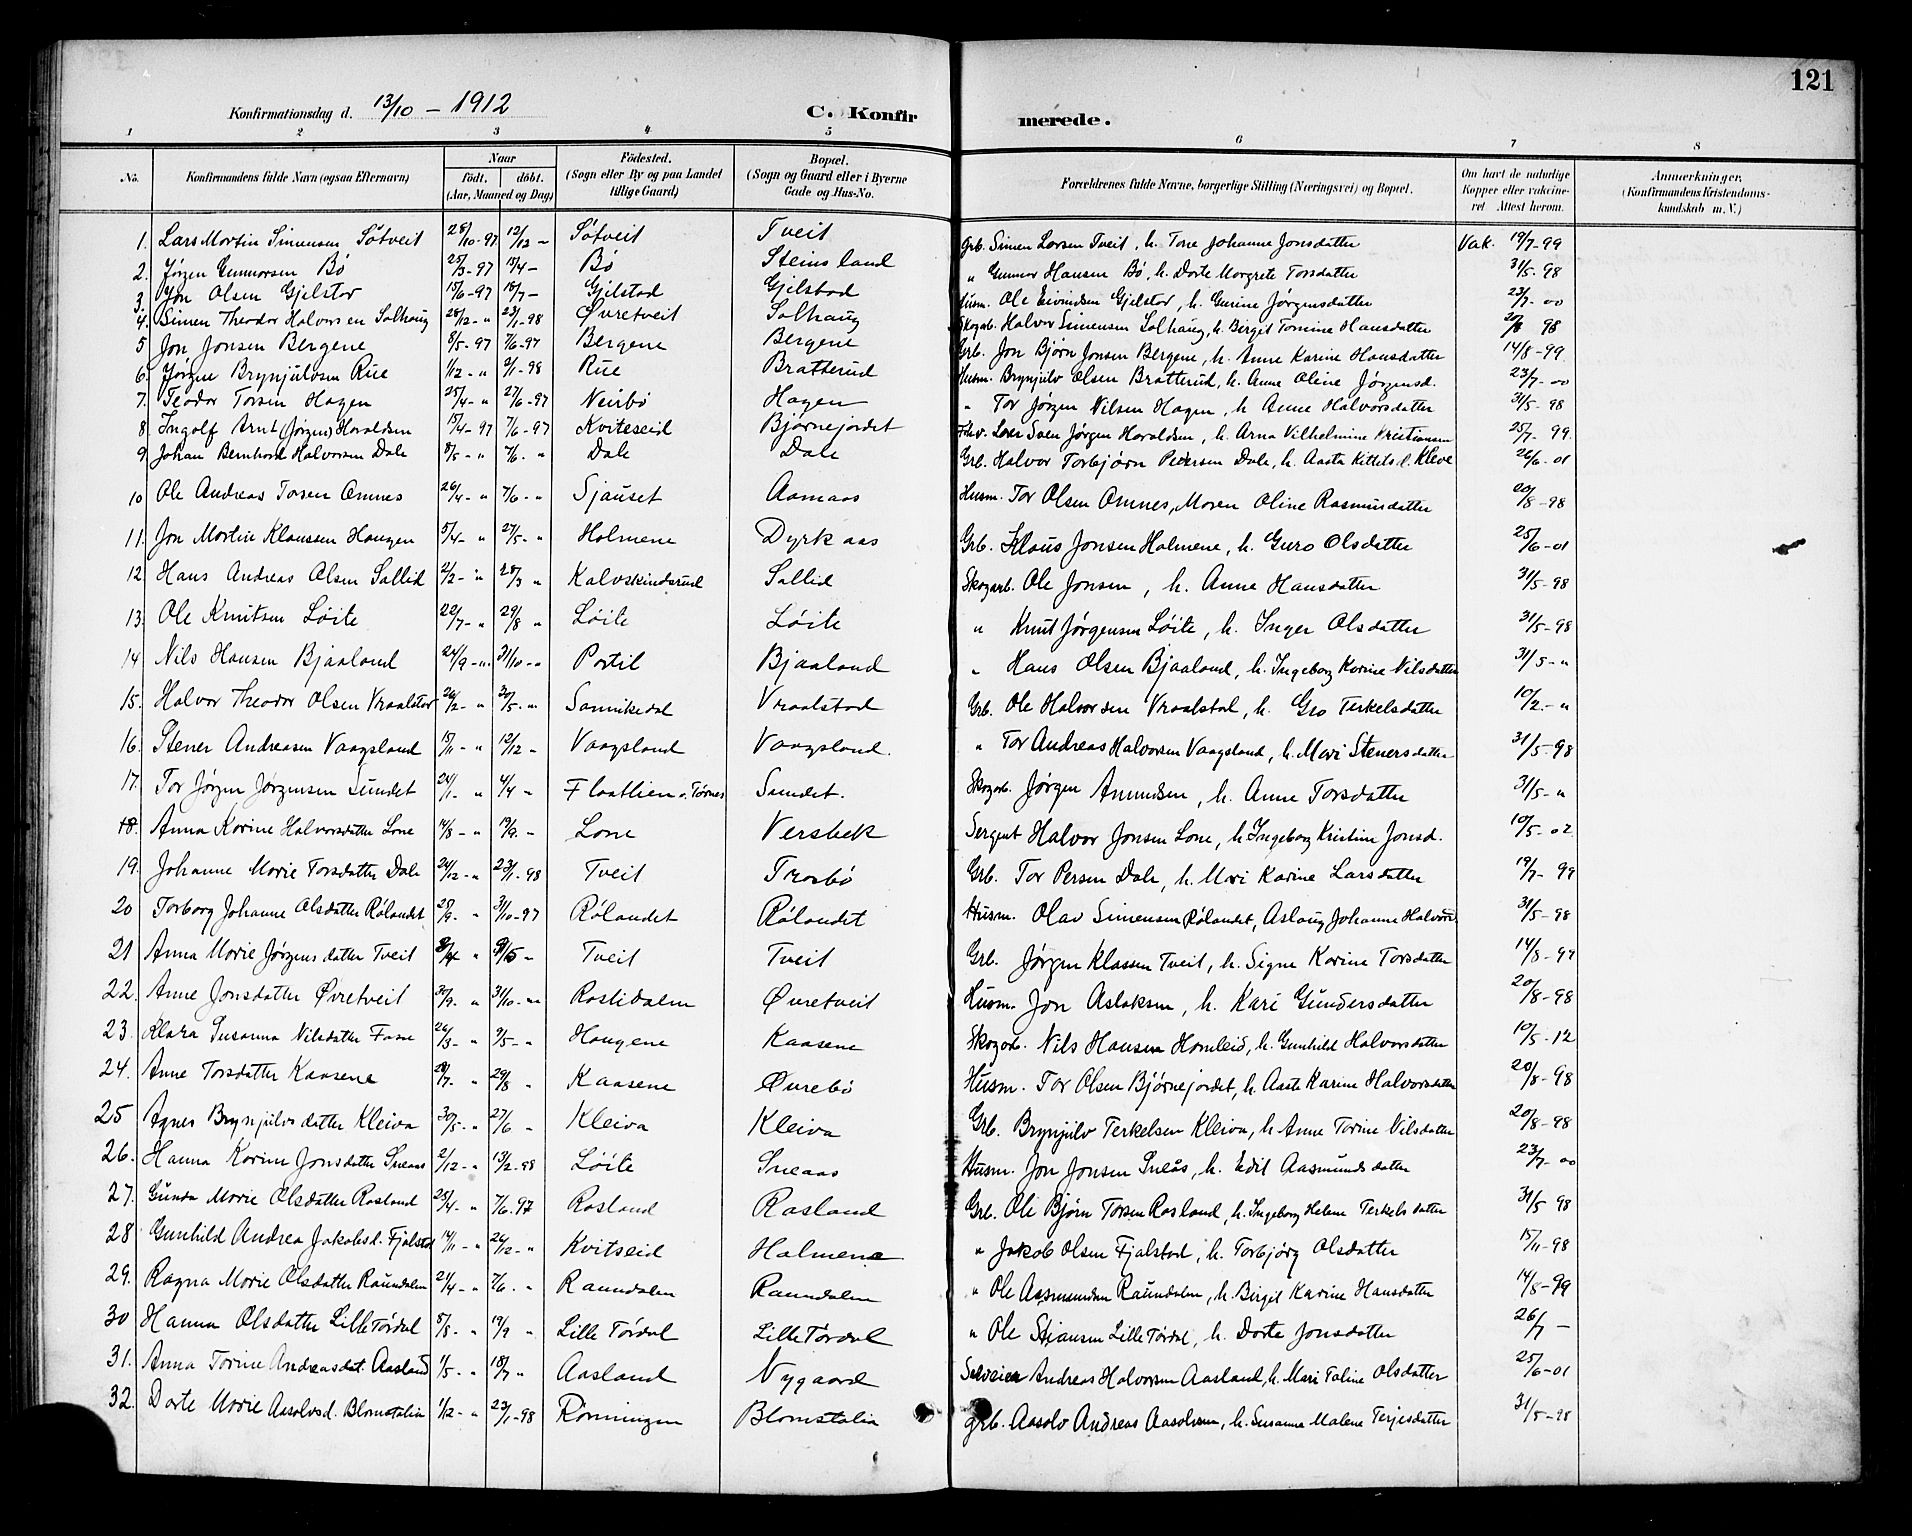 121
Konfirmationsdag d. 13/10 - 1912 C. Konfirmerede.
1 2 3 4 5 6 7 8
No. Konfirmandens fulde Navn (ogsaa Efternavn) Naar födt. döbt. (Aar, Maaned og Dag) Födested. (Sogn eller By og paa Landet tillige Gaard) Bopæl. (Sogn og Gaard eller i Byerne Gade og Hus-No. Forældrenes fulde Navne, borgerlige Stilling (Næringsvei) og Bopæl. Om havt de naturlige Kopper eller vaccineret Attest herom. Anmerkninger. (Konfirmandens Kristendomskundskab m. V.)
1. Lars Martin Simensen Søtveit 28/10-97 12/12 - Søtveit Tveit Grb. Simen Larsen Tveit, h. Tone Johanne Jonsdatter Vak. 19/7-99
2. Jørgen Gunnarsen Bø 25/3-97 - Bø Steinsland " Gunnar Hansen Bø, h. Dorte Margrete Torsdatter 31/5-98
3. Jon Olsen Gjelstad 15/6-97 18/7 - Gjelstad Gjelstad Husm. Ole Eivindsen Gjelstad, h. Gurine Jørgensdatter 23/7-00
4. Simen Theodor Halvorsen Solhaug 28/12- " 23/1-98 Øvretveit Solhaug Skogarb. Halvor Simensen Solhaug, h. Birgit Tomine Hansdatter 20/8 98
5 Jon Jonsen Bergene 8/5-97 7/6-97 Bergene Bergene Grb. Jon Bjørn Jonsen Bergene, h. Anne Karine Hansdatter 14/8-99
6. Jørgen Brynjulvsen Rue 1/12- " 9/1-98 Rue Bratterud Husm. Brynjulv Olsen Bratterud, h. Anne Oline Jørgensd. 23/7-00
7. Teodor Torsen Hagen 25/4- " 27/6-97 Neirbø Hagen " Tor Jørgen Nilsen Hagen, h. Anne Halvorsdatter 31/5-98
8 Ingolf Arnt (Jørgen) Haraldsen 15/4-97 7/6-97 Kviteseid Bjørnejordet Sven Jørgen Haraldsen, h. Arna Vilhelmine Kristiansen 25/7-99.
9 Johan Bernhard Halvorsen Dale 8/5- " 7/6. " Dale Dale Grb. Halvor Torbjørn Pedersen Dale, h. Aasta Kittilsd. Kleve 26/6-01
10 Ole Andreas Torsen Omnes 26/4- " 7/6- " Sjauset Aamaas Husm. Tor Olsen Omnes, Moren Oline Rasmusdatter 20/8-98
11. Jon Martin Klaussen Haugen 5/4- " 27/5- " Holmene Dyrkaas Grb. Klaus Jonsen Holmene, h. Guro Olsdatter 25/6-01
12. Hans Andreas Olsen Sollid 2/2- " 28/3 " Kalvskindsrud Sollid Skogarb. Ole Jonsen, h. Anne Hansdatter 31/5-98
13. Ole Knutsen Løite 22/7- " 29/8 " Løite Løite " Knut Jørgensen Løite, h. Inger Olsdatter 31/5-98
14 Nils Hansen Bjaaland 24/9- " 31/10- " Portil Bjaaland " Hans Olsen Bjaaland, h. Ingeborg Karine Nilsdatter 31/5- "
15. Halvor Theodor Olsen Vraalstad 26/2- " 30/5- " Sannikedal Vraalstad Grb. Ole Halvorsen Vraalstad, h. Gro Terkelsdatter 10/2.- "
16. Stener Andreasen Vaagsland 15/11- " 12/12 - Vaagsland Vaagsland. " Tor Andreas Halvorsen Vaagsland, h. Mari Stenersdatter 31/5-98
17. Tor Jørgen Jørgensen Sundet 24/1- " 4/4 - Flaatlien v. Tørnes Sundet. Skogarb. Jørgen Amundsen, h. Anne Torsdatter 31/5- "
18. Anna Karine Halvorsdatter Lone 14/8- " 19/9.- Lone Versbek Sergent Halvor Jonsen Lone, h. Ingeborg Kristine Jonsd. 10/5-02
19. Johanne Marie Torsdatter Dale 24/12- " 23/1-98 Tveit Trosbø Grb. Tor Persen Dale, h. Mari Karine Larsdatter 19/7-99
20 Torborg Johanne Olsdatter Rølandet 28/9. " 31/10-97 Rølandet Rølandet Husm. Olav Simensen Rølandet, Aslaug Johanne Halvors 31/5-98
21 Anna Marie Jørgensdatter Tveit " - Tveit Tveit Grb. Jørgen Klassen Tveit, h. Signe Karine Torsdatter 14/8-99
22. Anne Jonsdatter Øvretveit 30/9. " 31/10- " Roslidalen Øvretveit Husm. Jon Aslaksen, h. Kari Gundersdatter 20/8-98
23. Klara Susanna Nilsdatter Fone 26/3- " 9/5- " Haugene Kaasene Skogarb. Nils Hansen Homleid, h. Gunhild Halvorsdatter 10/5-12
24. Anne Torsdatter Kaasene 28/7. " 29/8 " Kaasene Øvrebø Husm. Tor Olsen Bjørnejordet, h. Aaste Karine Halvorsdatter 20/8-98
25 Agnes Brynjulvsdatter Kleiva 30/5- " 27/6 - Kleiva Kleiva Grb. Brynjulv Terkelsen Kleiva, h. Anne Torine Nilsdatter 20/8-98
26. Hanna Karine Jonsdatter Sneaas 2/12- " 13/2-98 Løite Sneaas Husm. Jon Jonsen Sneås, h. Edit Aasmundsdatter 23/7-00
27. Gunda Marie Olsdatter Rosland 25/4- " 7/6-97 Rosland Rosland Grb. Ole Bjørn Torsen Rosland, h. Ingeborg Helene Terkelsdatter 31/5 98
28 Gunhild Andrea Jakobsd. Fjalstad 14/11- " 26/12- " Kvitseid Holmene " Jakob Olsen Fjalstad, h. Torbjørg Olsdatter 15/11-98
29. Ragna Marie Olsdatter Raundalen 21/4- " 7/6. " Raundalen Raundalen " Ole Aasmundsen Raundalen, h. Birgit Karine Hansdatter 14/8-99
30 Hanna Olsdatter Lille Tørdal 8/8- " 19/9 " Lille Tørdal Lille Tørdal " Ole Lille Tørdal, h. Dorte Jonsdatter 26/7 -
31. Anna Torine Andreasdat. Aasland 1/5- " 18/7 " Aasland Nygaard Selveier Andreas Halvorsen Aasland, h. Mari Taline Olsdatter 25/6-01
32. Dorte Marie Aasolvsd. Blomstalia 1/12- " 23/1-98 Rønningen Blomstalia Grb. Aasolv Andreas Aasolvsen, h. Susanne Malene Terjesdatter 31/5-98